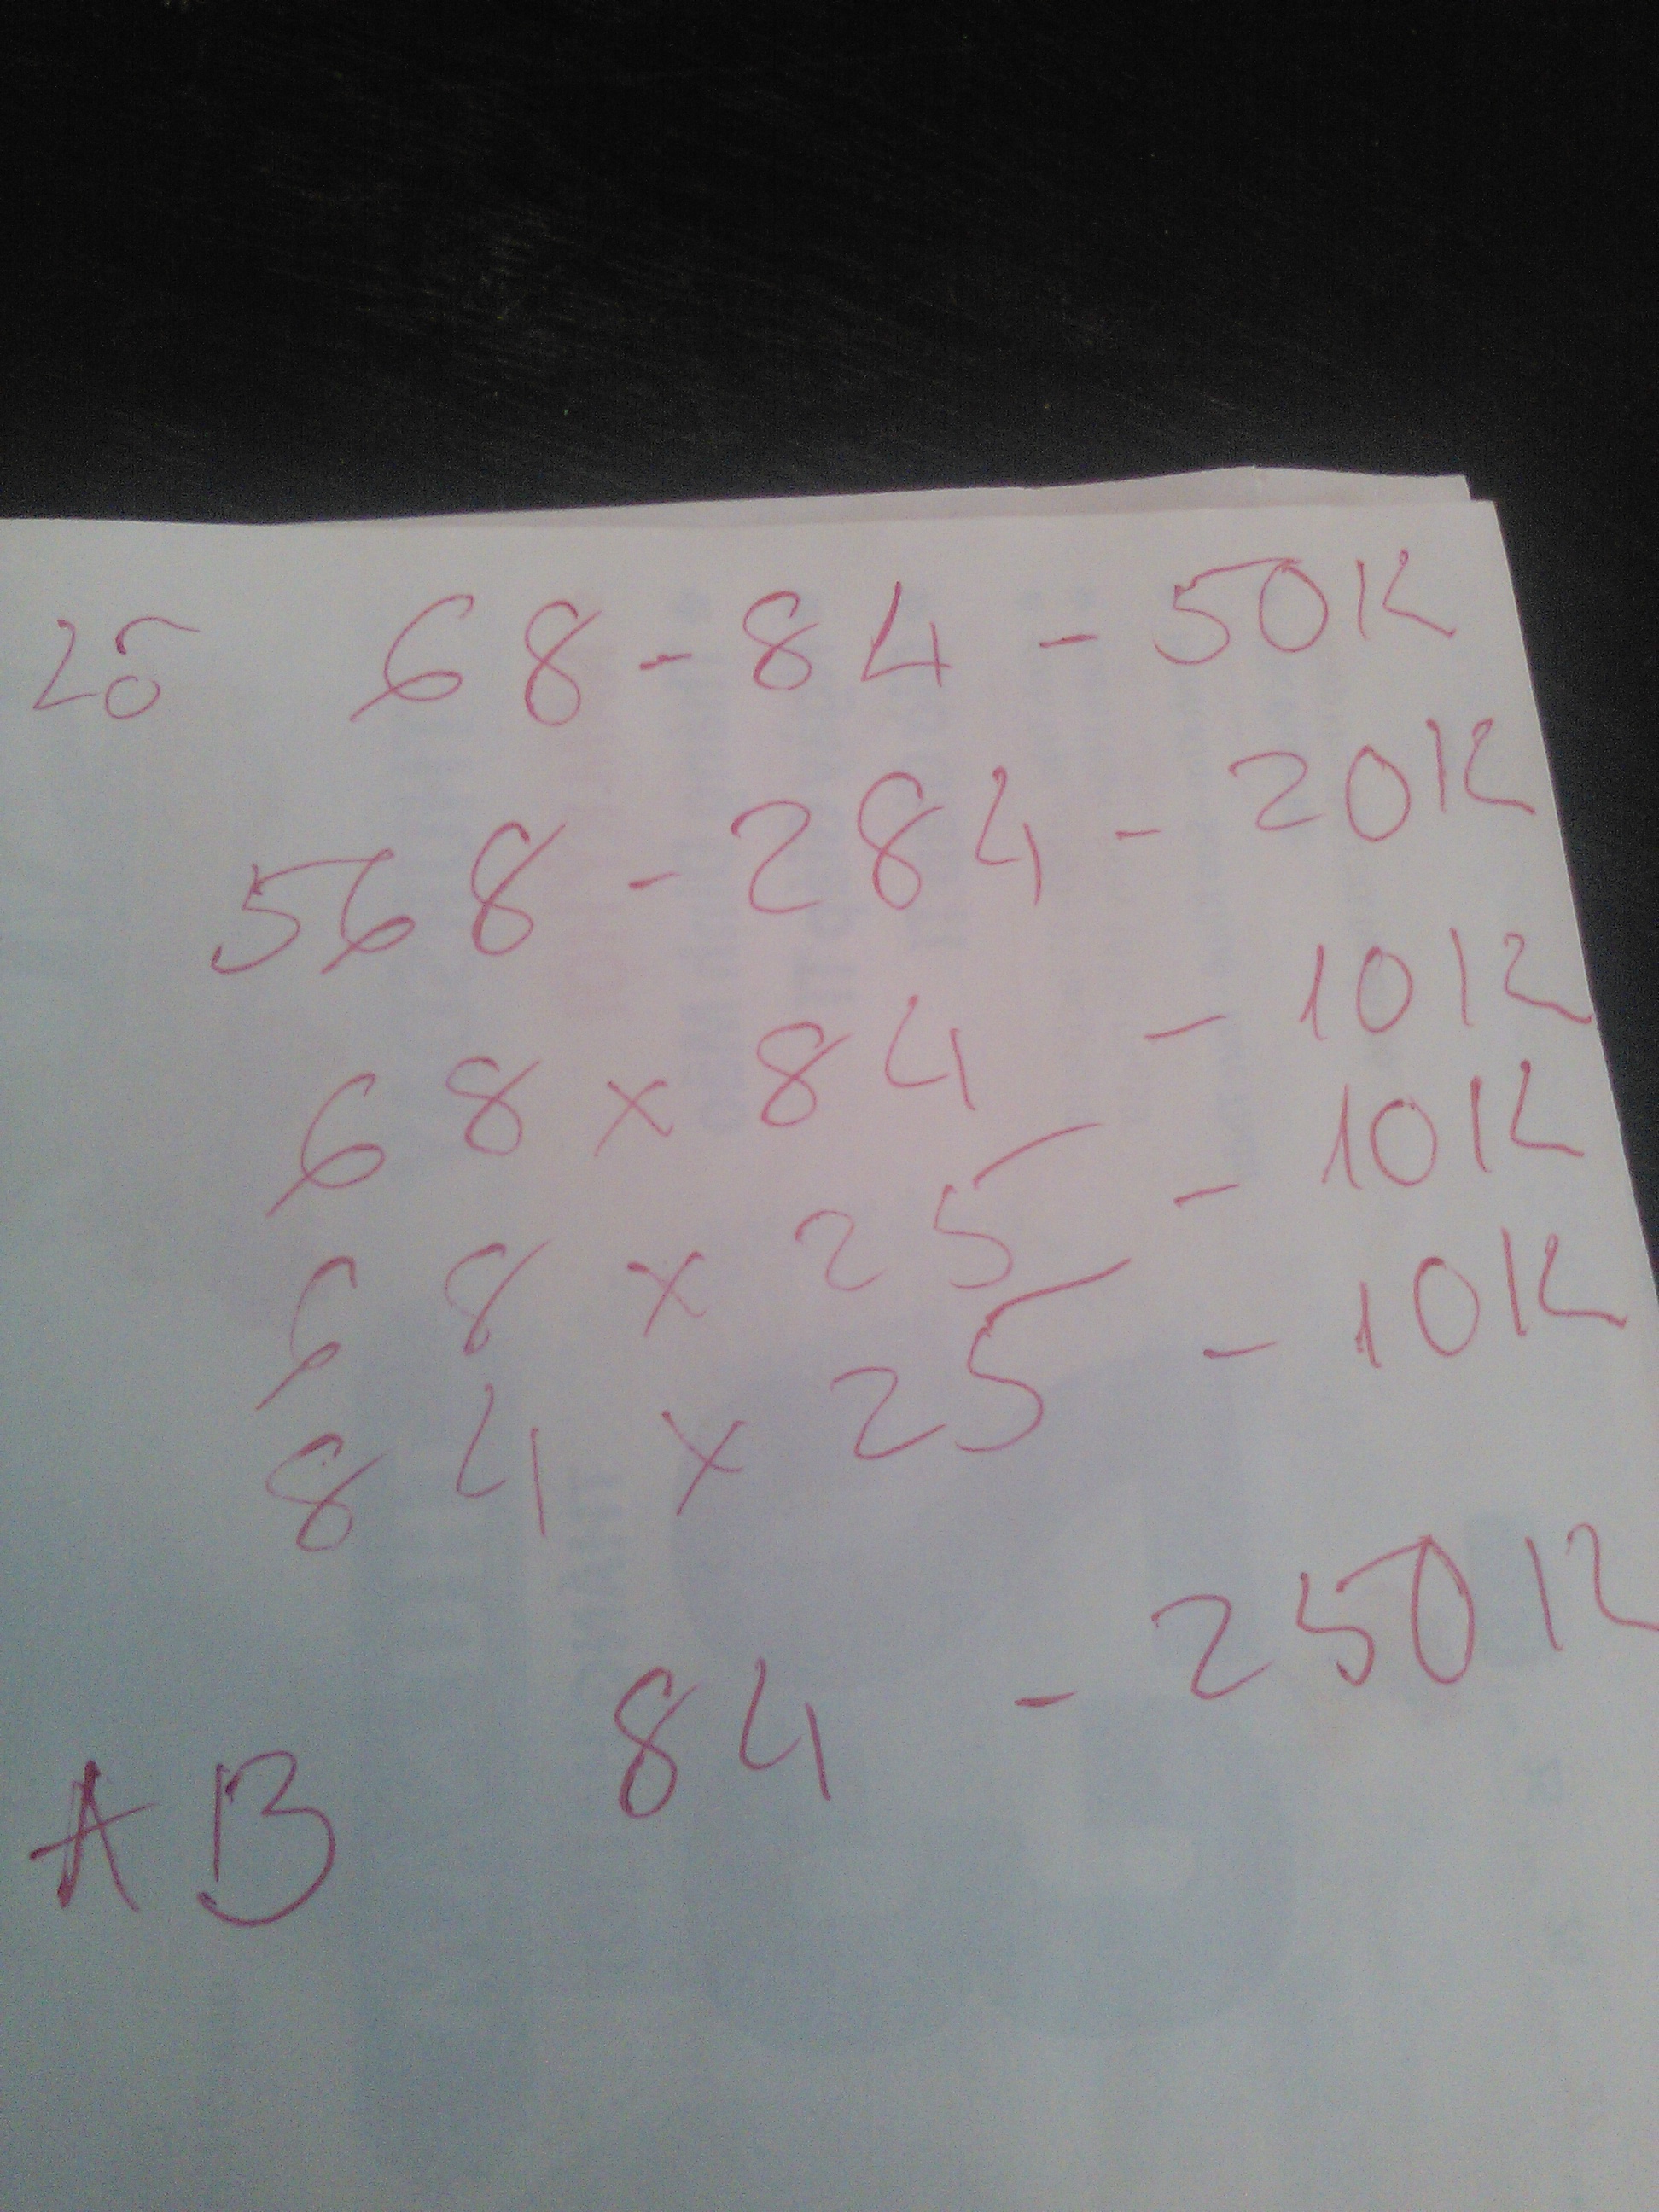 25 68-84 - 50K
568 - 284 - 20K
68 x 84 - 10K
68 x 25 - 10K
84 x 25 - 10K
84 - 250K
AB